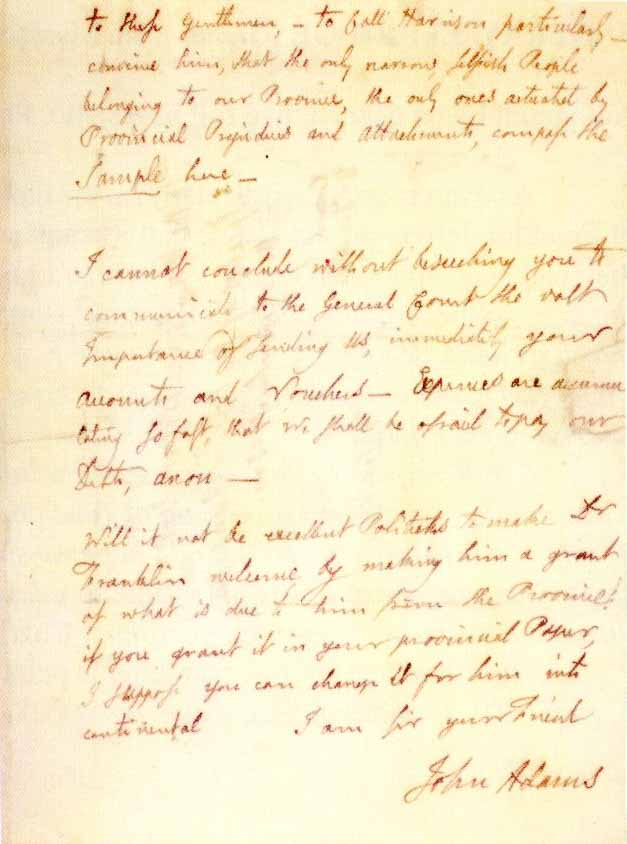 to these Gentlemen, — to Coll Harrison particularly —
convince him, that the only narrow, selfish People
belonging to our Province, the only ones actuated by
Provincial Prejudices and Attachments, compose the
Sample here —
I cannot conclude without beseeching you to
communicate to the General Court the vast
Importance of sending Us, immediately your
Accounts and Vouchers — Expences are accumu
lating so fast, that we shall be afraid to pay our
Debts, anon —
Will it not be excellent Politicks to make Dr
Franklin welcome by making him a grant
of what is due to him from the Province?
if you grant it in your provincial Paper,
I suppose you can change it for him into
continental I am sir your Friend
John Adams